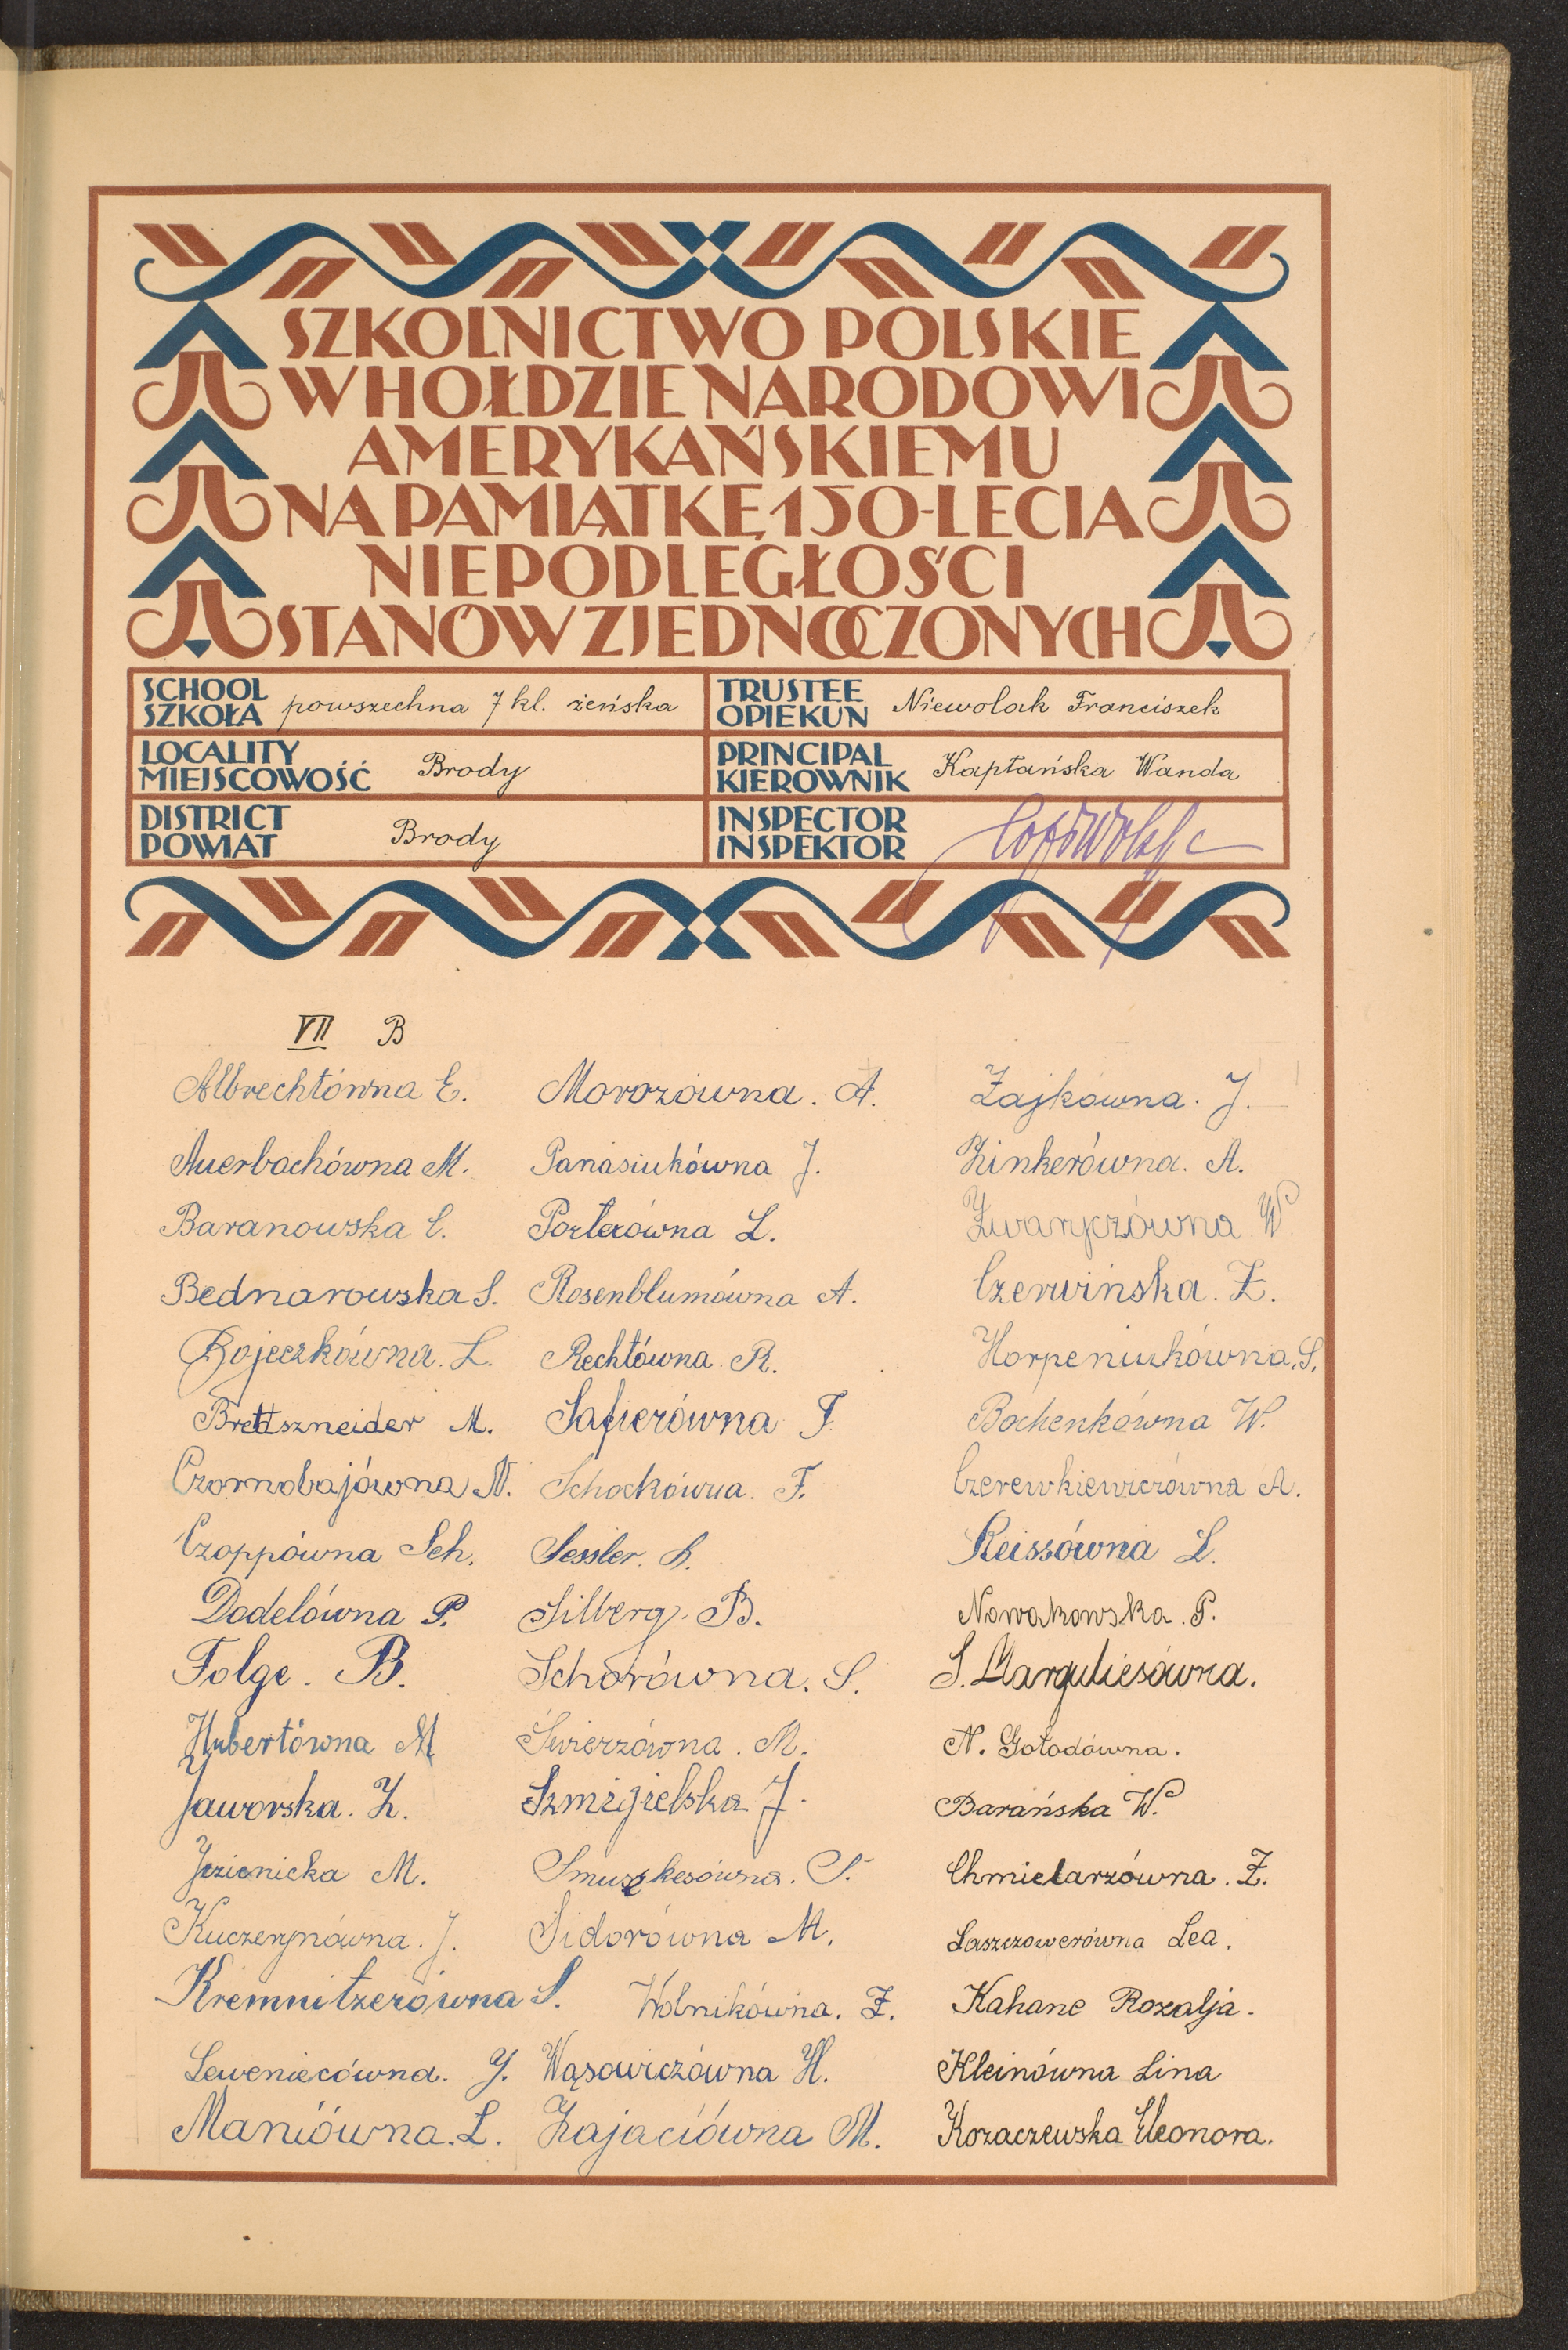 SZKOLNICTWO POLSKIE
W HOŁDZIE NARODOWI
AMERYKAŃSKIEMU
NA PAMIĄTKĘ 150-LECIA
NIEPODLEGŁOŚCI
STANÓW ZJEDNOCZONYCH
SCHOOL
SZKOŁA powszechna 7 kl. żeńska
TRUSTEE
OPIEKUN Niewolak Franciszek
LOCALITY
MIEJSCOWOŚĆ Brody
PRINCIPAL
KIEROWNIK Kapłańska Wanda
DISTRICT
POWIAT Brody
INSPECTOR
INSPEKTOR
VII B
Albrechtówna E.
Auerbachówna M.
Baranowska C.
Bednarowska S.
Bojeczkówna. L.
Brettszneider M.
Czornobajówna N.
Czoppówna Sch.
Dodelówna P.
Folge. B.
Hubertówna M
Jaworska. Z.
Jezienicka M.
Kuczerynówna. J.
Kremnitzerówna S.
Leweniecówna. J.
Maniówna. L.
Morozówna. A.
Panasiukówna J.
Porterówna L.
Rosenblumówna A.
Rechtówna R.
Safierówna F
Schockówna. F.
Sessler. B.
Silberg. B.
Schorówna. S.
Świerzówna. M.
Szmigielska J.
Smuszkesówna. S.
Sidorówna M.
Wolnikówna. Z.
Wąsowiczówna H.
Zajaciówna M.
Zajkówna. J.
Zinkerówna. A.
Zwaryczówna W.
Czerwińska. Z.
Horpeniukówna. S.
Bochenkówna W.
Czerewkiewiczówna A.
Reissówna L.
Nowakowska. P.
S. Marguliesówna.
N. Gołodówna.
Barańska W.
Chmielarzówna. Z.
Laszczowerówna Lea.
Kahane Rozalja.
Kleinówna Lina
Kozaczewska Eleonora.